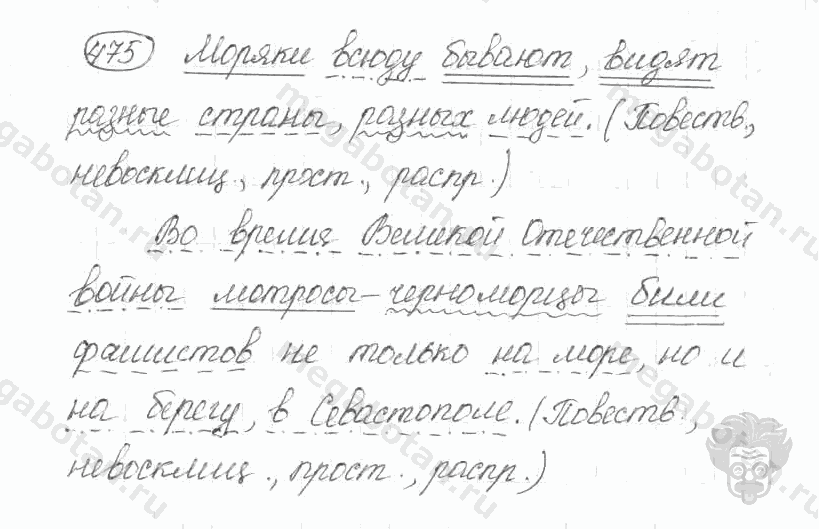 475 Моряки всюду бывают, видят
разные страны, разных людей. (Повеств.,
невосклиц., прост., распр.)
Во время Великой Отечественной
войны матросы-черноморцы били
фашистов не только на море, но и
на берегу, в Севастополе. (Повеств.,
невосклиц., прост., распр.)
megabotan.ru